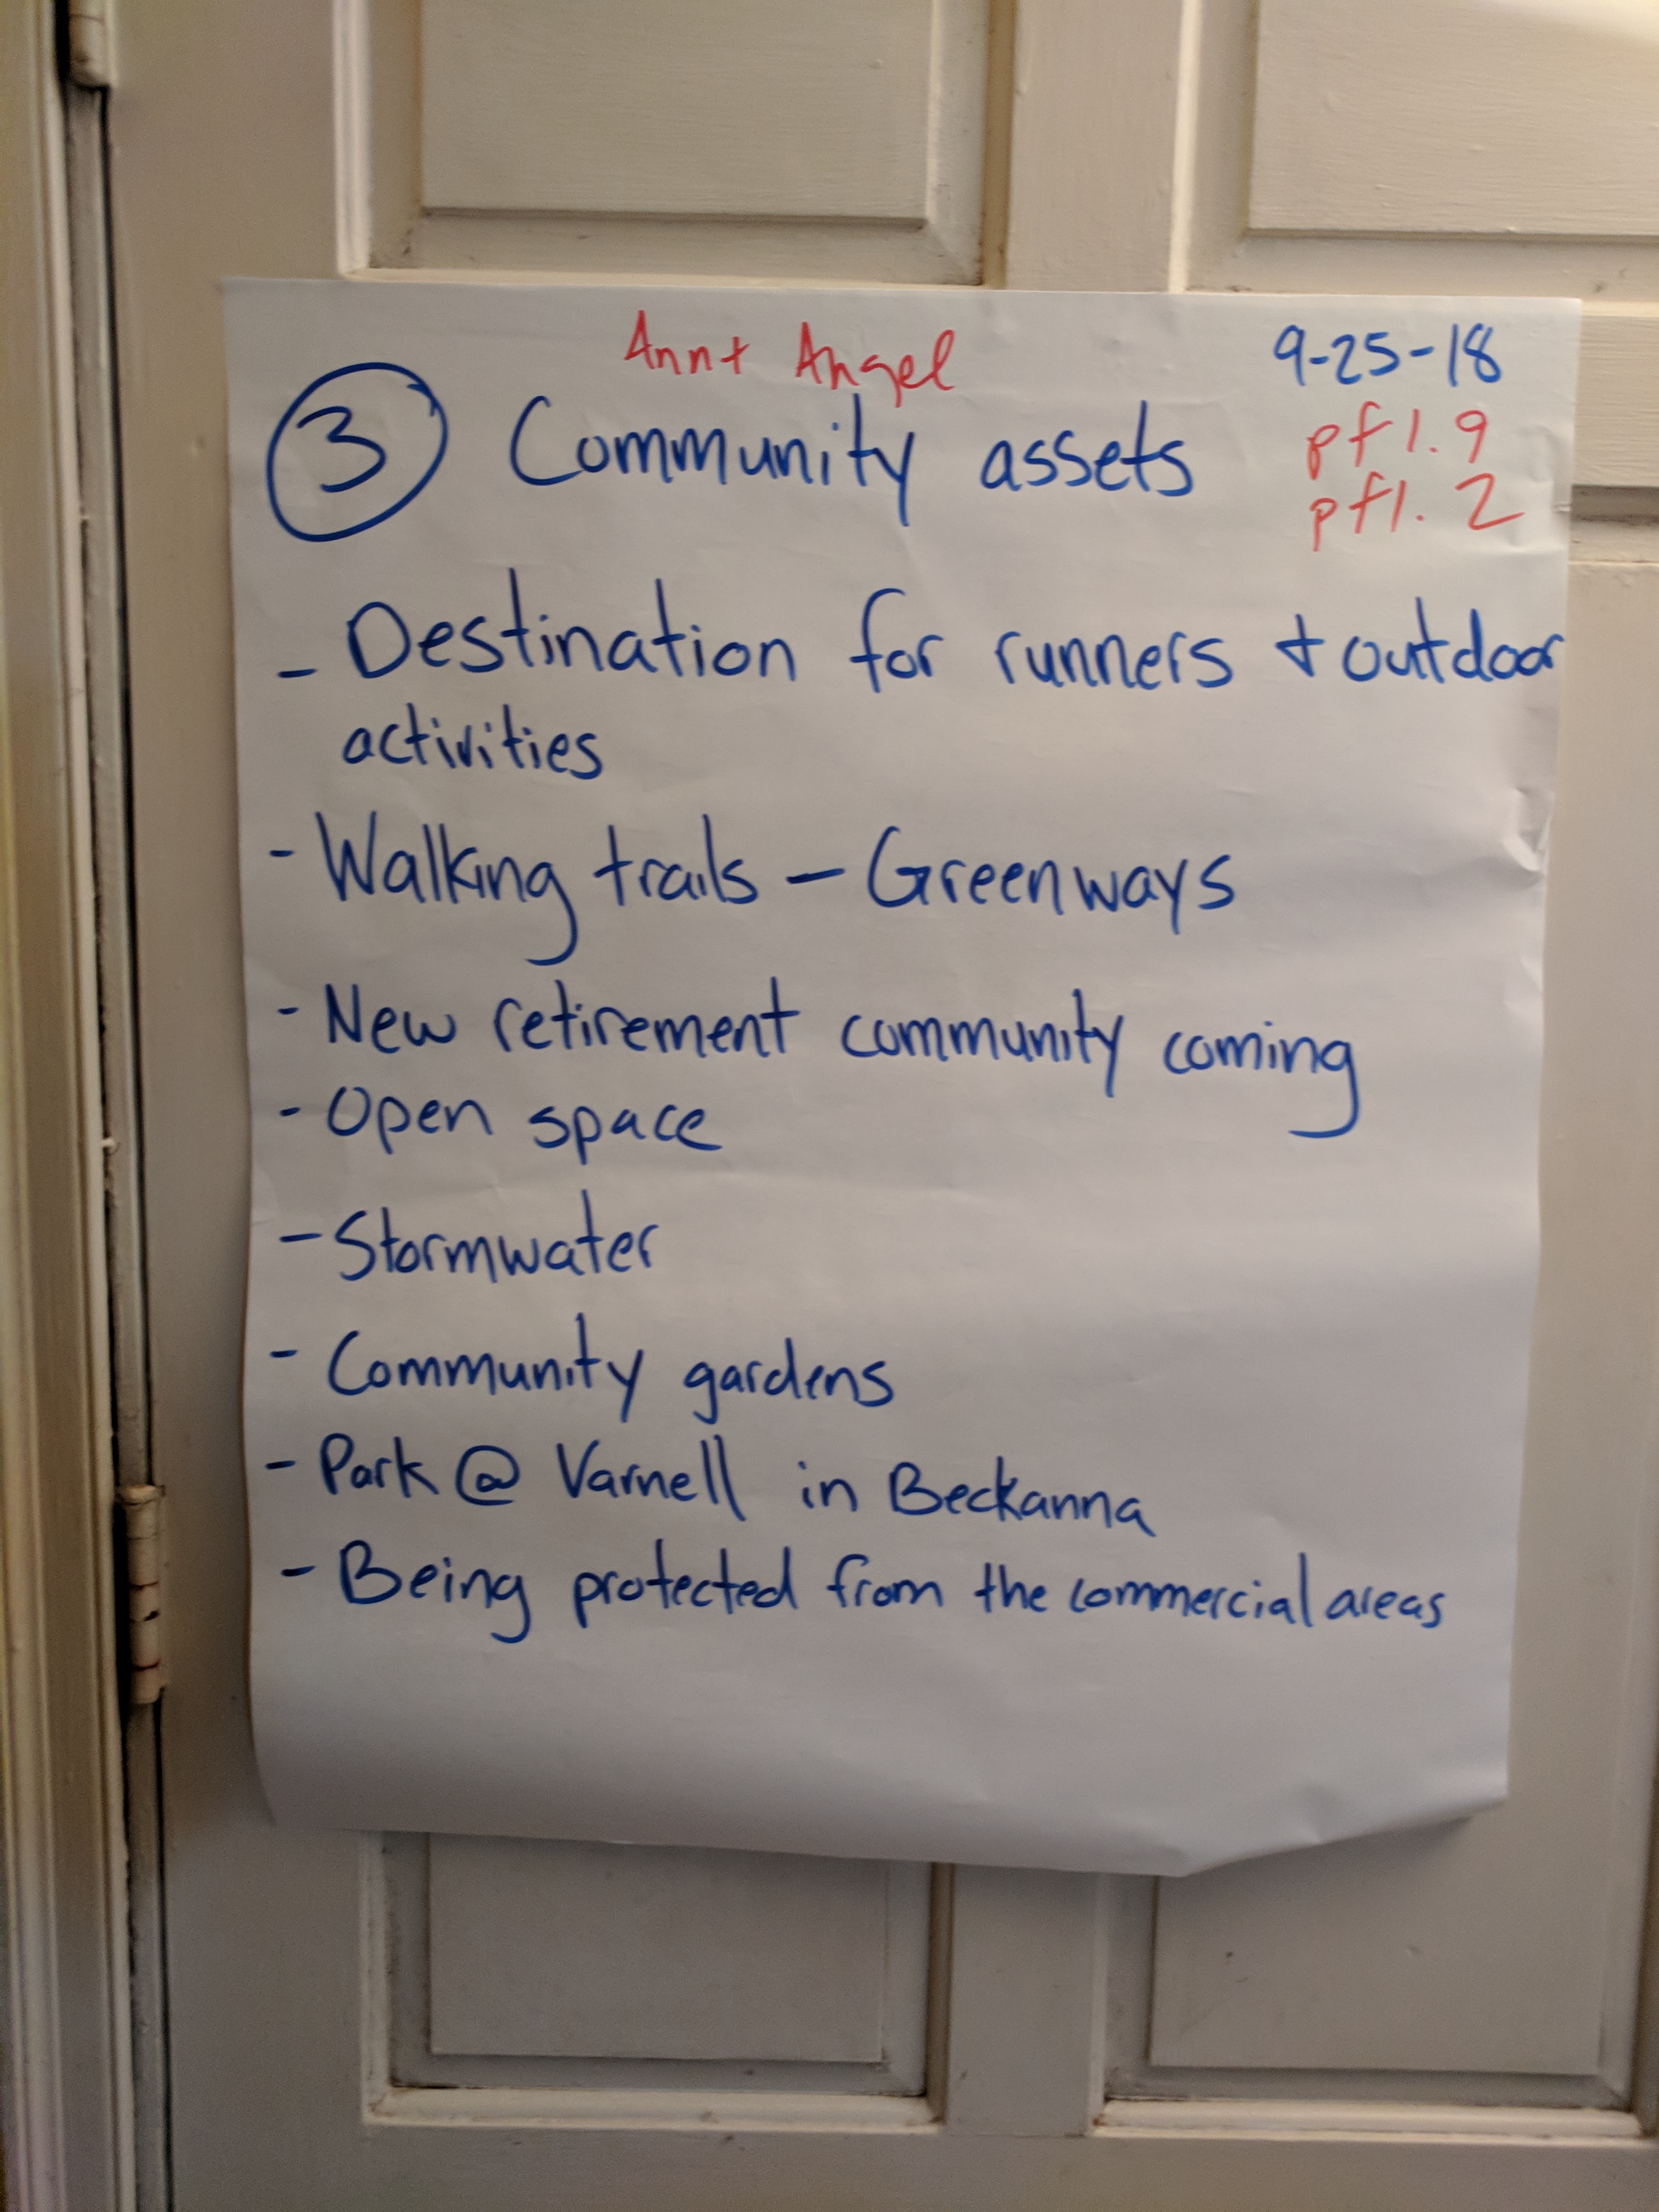 Ann + Angel
9-25-18
③ Community assets
pf 1.9
pf 1.2
- Destination for runners + outdoor
activities
- Walking trails - Greenways
- New retirement community coming
- Open space
- Stormwater
- Community gardens
- Park @ Varnell in Beckanna
- Being protected from the commercial areas